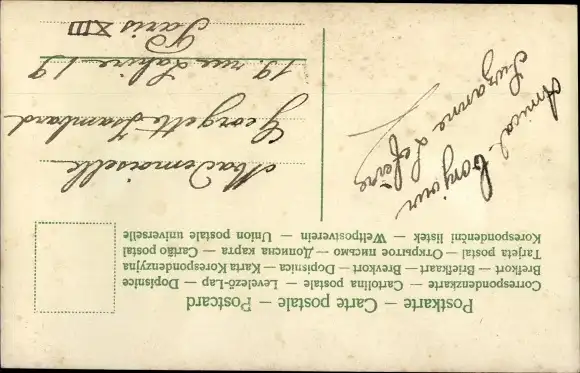 Postkarte — Carte postale — Postcard
Correspondenzkarte — Cartolina postale — Levelező-Lap — Dopisnice
Breſkort — Briefkaart — Brevkort — Dopisnica — Karta Korespondenzyjna
Tarjeta postal — Открытое письмо — Дописна карта — Cartão postal
Korespondenční listek — Weltpostverein — Union postale universelle
Amical bonjour
Suzanne Lefèvre
Mademoiselle
Georgette Isambard
19. rue Lahire 19
Paris XIII